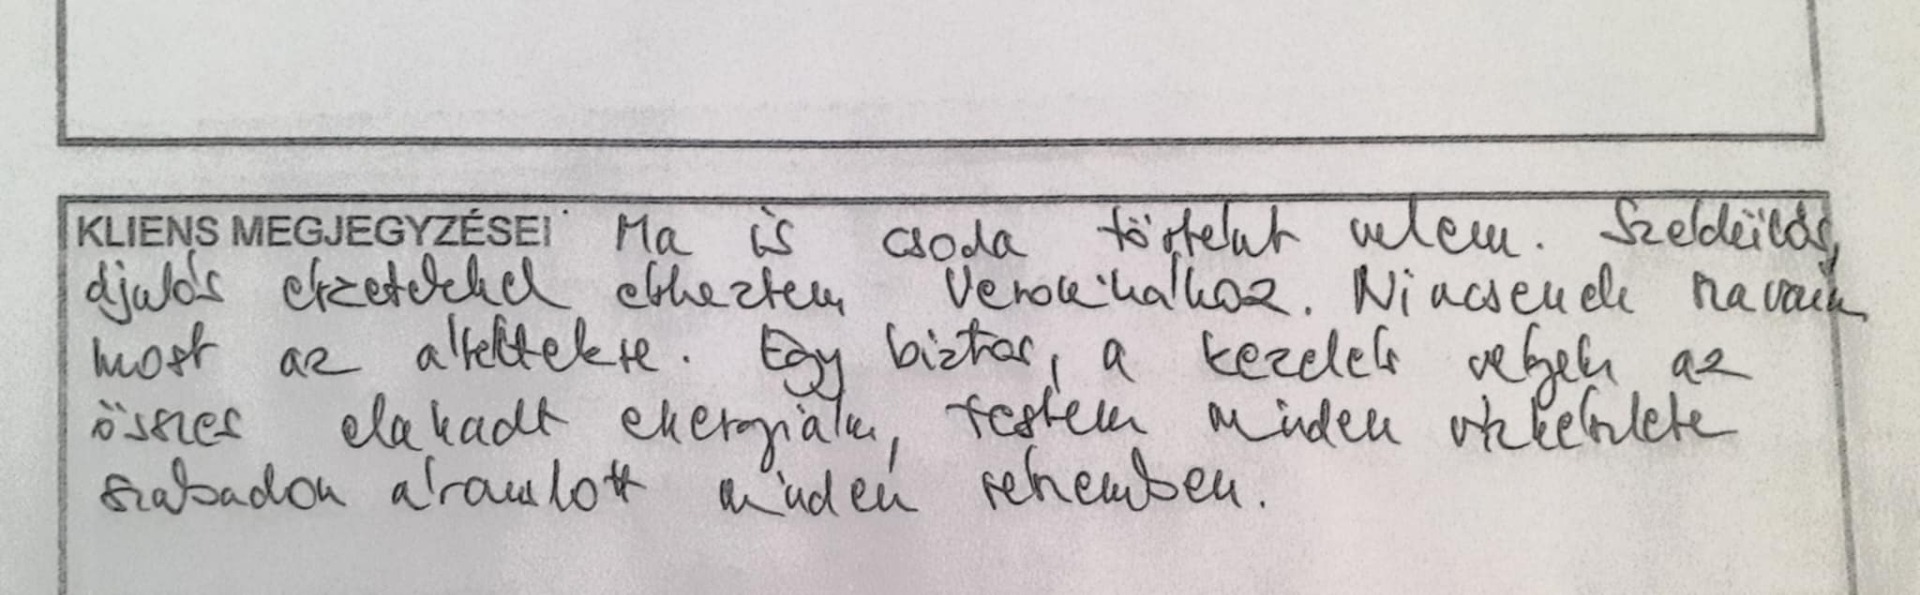 KLIENS MEGJEGYZÉSEI Ma is csoda történt velem. Szédülős,
ájulós érzetekkel érkeztem Veronikához. Nincsenek szavaim
most az átéltekre. Egy biztos, a kezelés végén az
összes elakadt energiám, testem minden
szabadon áramlott minden részemben.